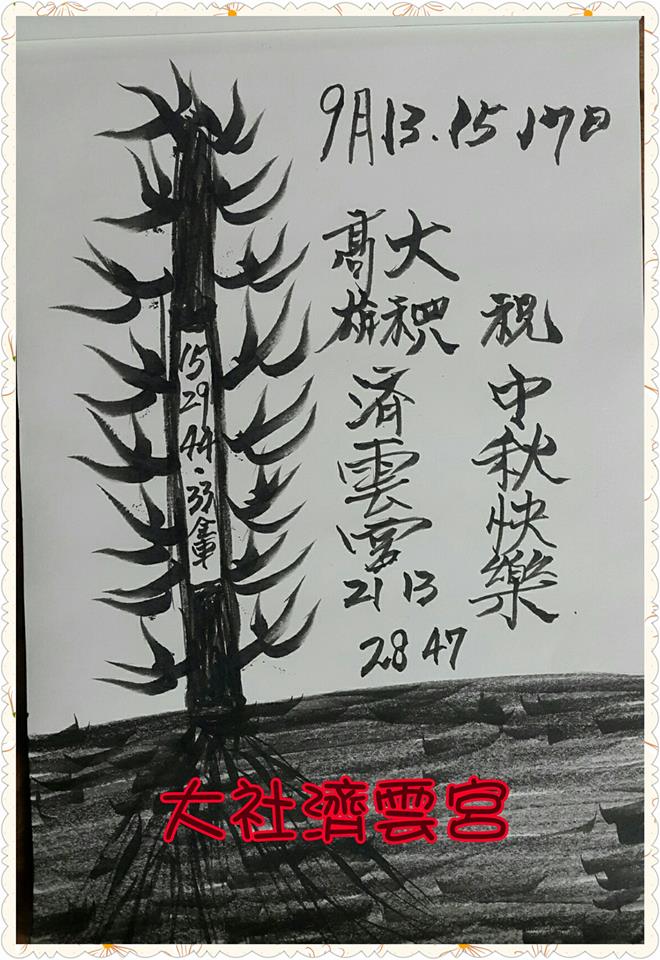 9月13.15 17日
祝中秋快樂
高雄
大
濟雲宮
21 13
28 47
15
29
44.
33
全車
大社濟雲宮